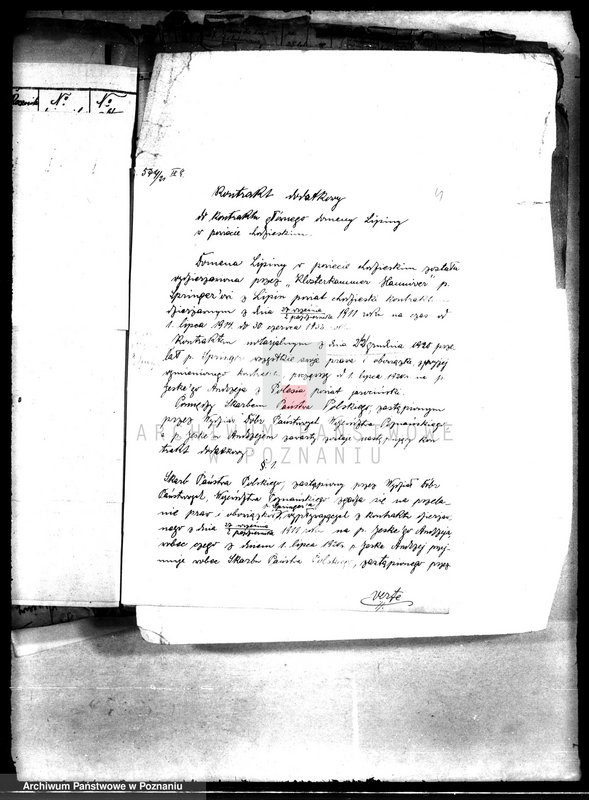 No No
574/21 IV R.
4
Kontrakt dodatkowy
do kontraktu głównego domeny Lipiny
w powiecie chodzieskim.
Domena Lipiny w powiecie chodzieskim została
wydzierżawiona przez „Klosterkammer Hannover" p.
Springer'owi z Lipin powiat chodzieski kontraktem
dzierżawnym z dnia 27 września / 2 października 1911 roku na czas od
1 lipca 1914 do 30 czerwca 1933
Kontraktem notarjalnym z dnia 24 grudnia 1920 prze-
lał p. Springer wszystkie swoje prawa i obowiązki z powyżej
wymienionego kontraktu począwszy od 1 lipca 1920 na p.
Jeske'go Andrzeja z powiat jarociński.
Pomiędzy Skarbem Państwa Polskiego, zastąpionym
przez Wydział Dóbr Państwowych Województwa Poznańskiego
i p. Jeske'm Andrzejem zawarty zostaje następujący kon-
trakt dodatkowy
§ 1.
Skarb Państwa Polskiego, zastąpiony przez Wydział Dóbr
Państwowych, Województwa Poznańskiego zgadza się na przela-
nie praw i obowiązków p. Springer'a wypływających z kontraktu dzierżaw-
nego z dnia 27 września / 2 października 1911 roku na p. Jeske'go Andrzeja,
wobec czego z dniem 1 lipca 1920 r. p. Jeske Andrzej przyj-
muje wobec Skarbu Państwa Polskiego, zastąpionego przez
verte
ARCHIWUM PAŃSTWOWE
W POZNANIU
Archiwum Państwowe w Poznaniu